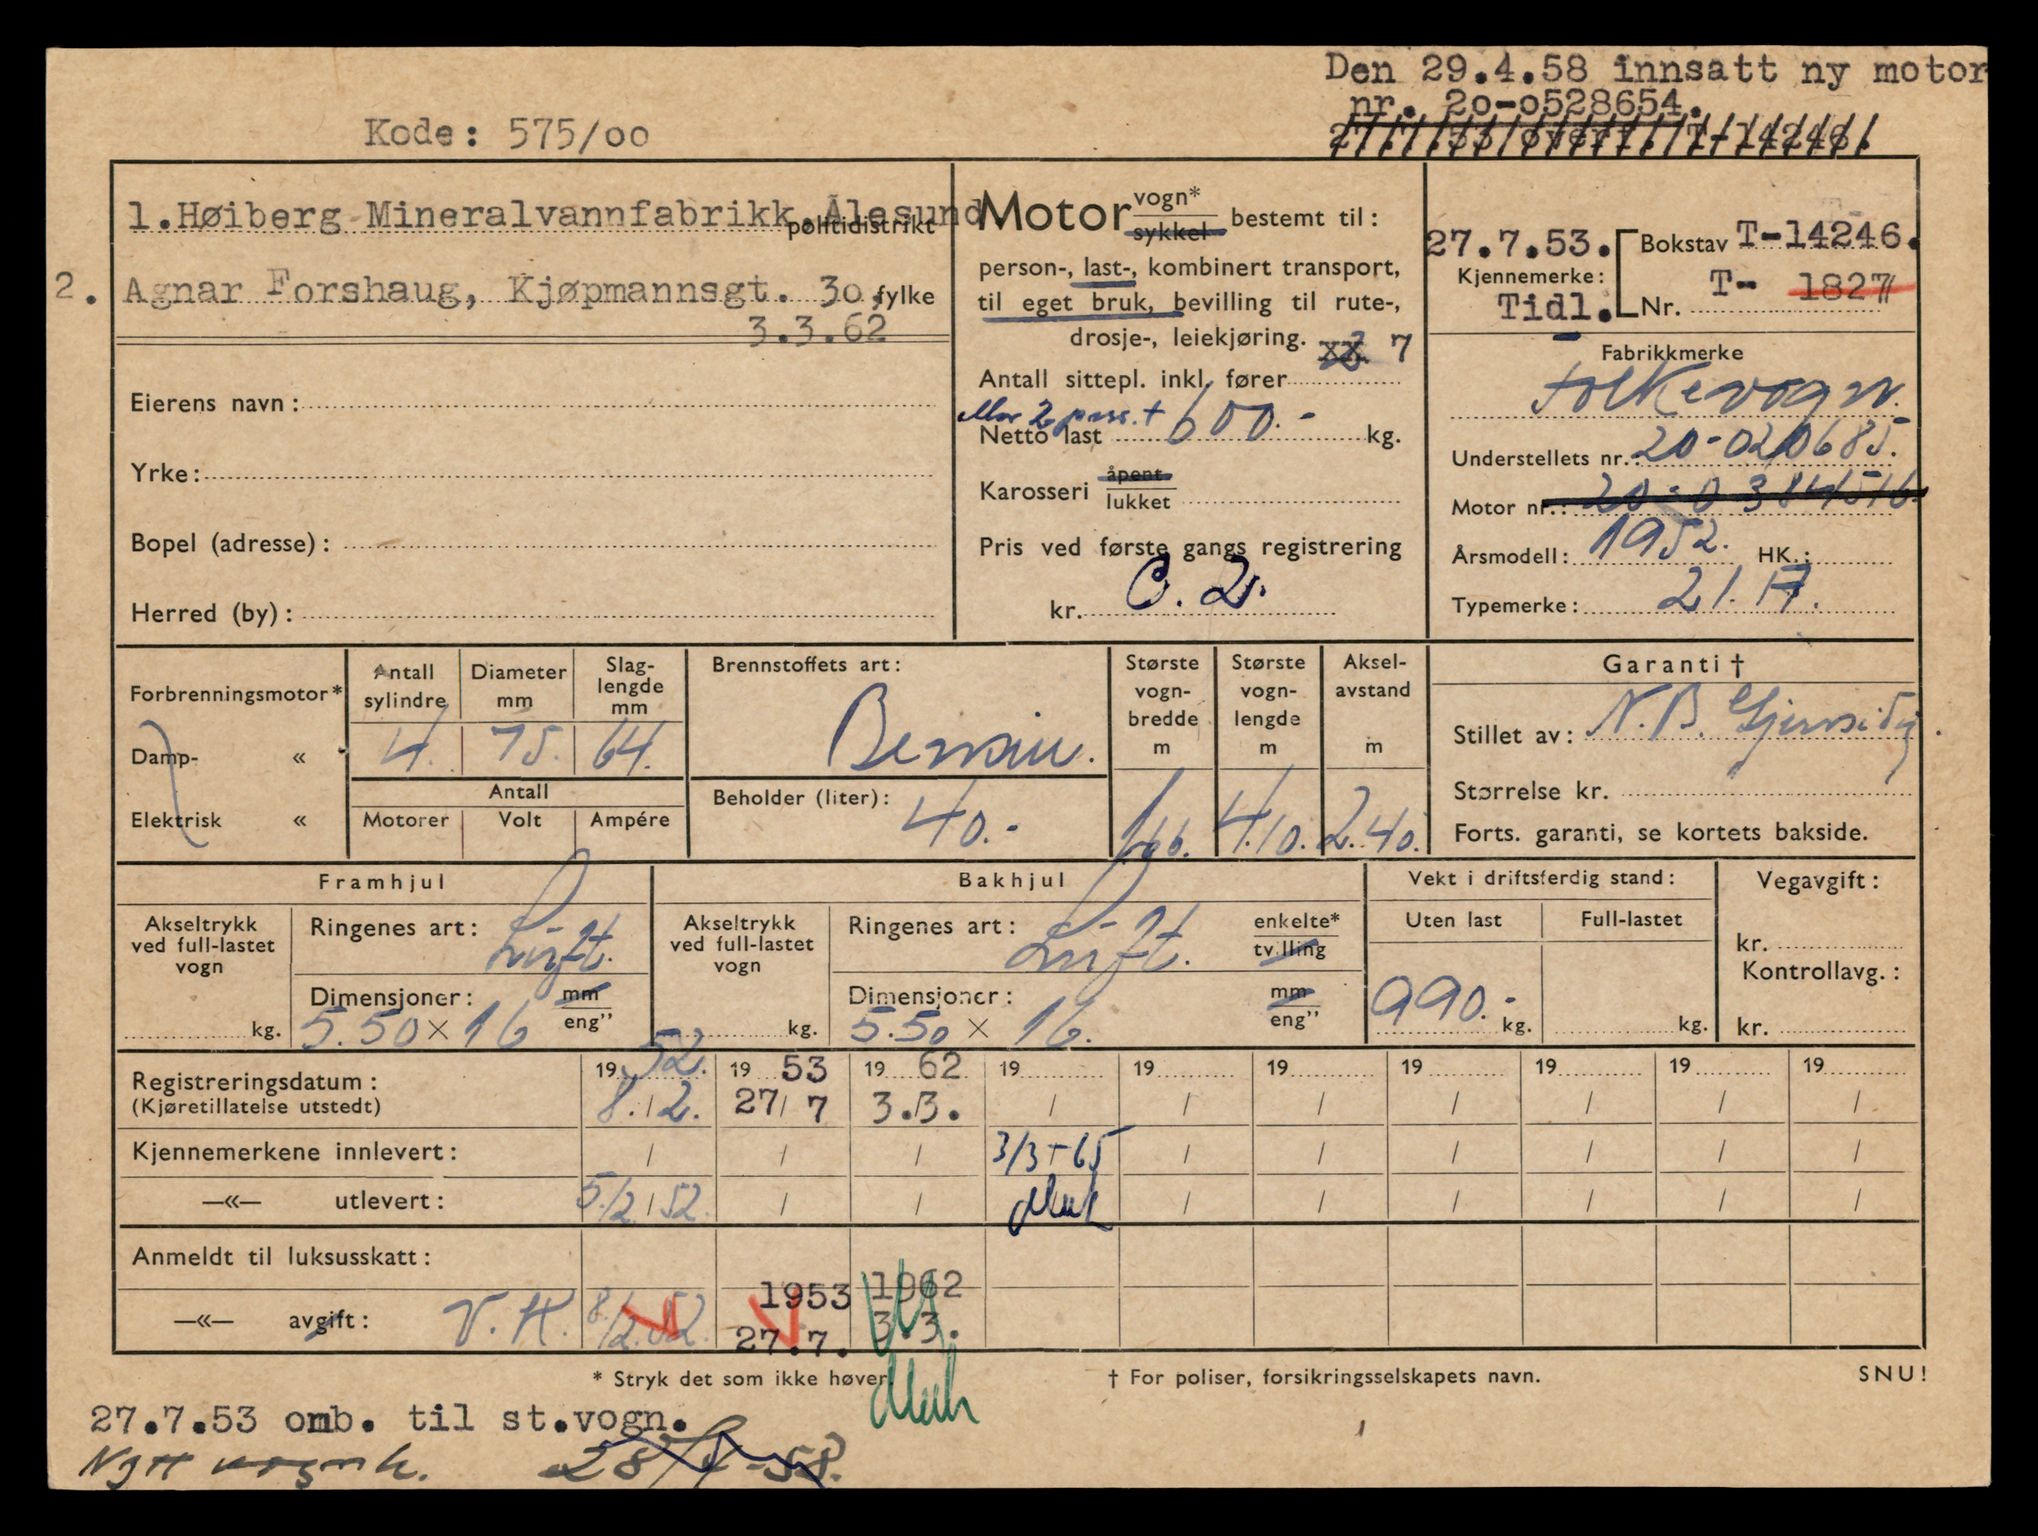 Den 29.4.58 innsatt ny motor
nr. 2o-o528654.
Kode: 575/oo
27.7.53 overf. T-14246.
1.Høiberg Mineralvannfabrikk.Ålesund
politidistrikt
2. Agnar Forshaug, Kjøpmannsgt. 3o. fylke
3.3.62
Eierens navn:
Yrke:
Bopel (adresse):
Herred (by):
Motor vogn* sykkel bestemt til:
person-, last-, kombinert transport,
til eget bruk, bevilling til rute-,
drosje-, leiekjøring.
Antall sittepl. inkl. fører 7
Netto last Max 2 pass. + 600.- kg.
Karosseri åpent lukket
Pris ved første gangs registrering
kr. C. 2.
27.7.53. Bokstav T-14246.
Kjennemerke:
Tidl. Nr. T- 1827
Fabrikkmerke
Folkevogn.
Understellets nr.: 20-020685.
Motor nr.: 20-0384516
Årsmodell: 1952. HK.:
Typemerke: 21.17.
Forbrenningsmotor*
Damp- «
Elektrisk «
Antall sylindre Diameter mm Slag-lengde mm
4. 75. 64.
Antall
Motorer Volt Ampére
Brennstoffets art:
Bensin.
Beholder (liter):
40.-
Største vogn-bredde m
1.66.
Største vogn-lengde m
4.10.
Aksel-avstand m
2.40.
Garanti †
Stillet av: N.B. Gjensidig.
Størrelse kr.
Forts. garanti, se kortets bakside.
Framhjul
Akseltrykk ved full-lastet vogn
kg.
Ringenes art: Luft.
Dimensjoner: mm eng"
5.50 × 16
Bakhjul
Akseltrykk ved full-lastet vogn
kg.
Ringenes art: Luft. enkelte* tvilling
Dimensjoner: mm eng"
5.50 × 16.
Vekt i driftsferdig stand:
Uten last Full-lastet
990.- kg. kg.
Vegavgift:
kr.
Kontrollavg.:
kr.
Registreringsdatum: 19 52. 19 53 19 62 19 19 19 19 19 19 19
(Kjøretillatelse utstedt) 8./2. 27/7 3.3. / / / / / / /
Kjennemerkene innlevert: / / / 3/3-65 / / / / / /
—«— utlevert: 5/2/52. / / / / / / / /
Anmeldt til luksusskatt:
1953 1962
—«— avgift: V.H. 8/2.52. 27.7. 3.3.
* Stryk det som ikke høver.
† For poliser, forsikringsselskapets navn.
SNU!
27.7.53 omb. til st.vogn.
Nytt vognk. 28/4-58.